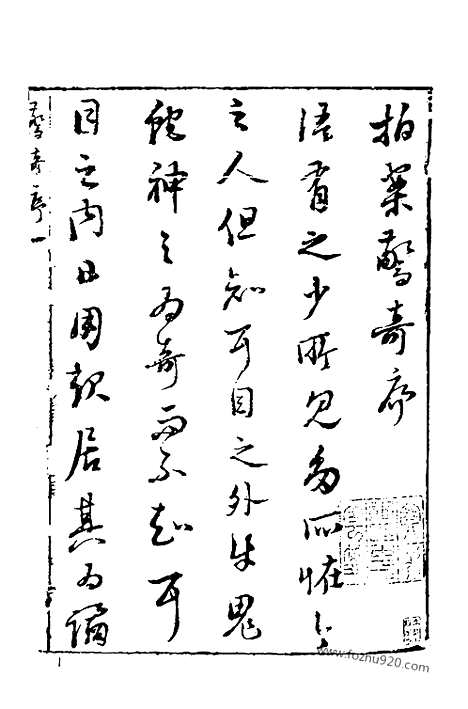 拍案驚奇序
語有之少所見多所怪今
之人但知耳目之外牛鬼
蛇神之為奇而不知耳
目之內日用起居其為譎
驚奇序一
www.fozhu920.com